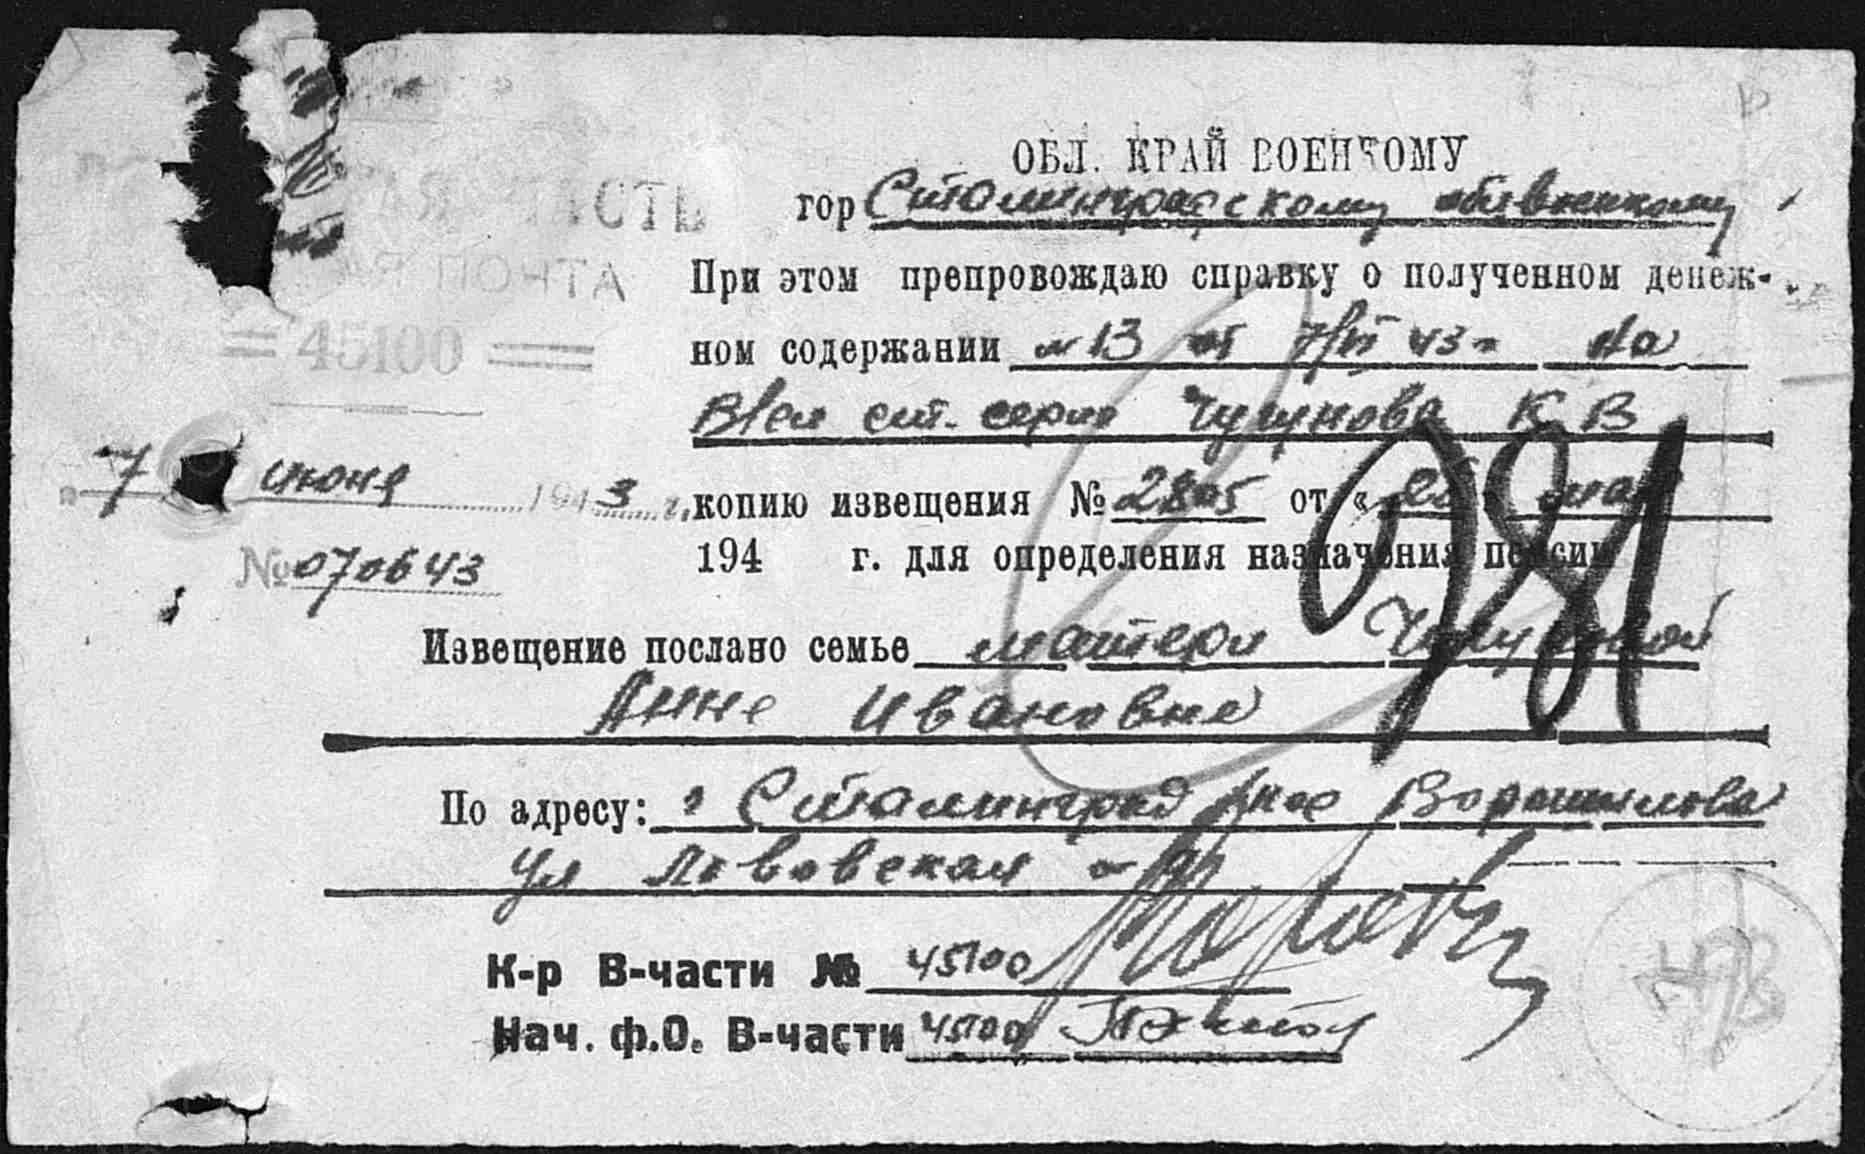 ОБЛ. КРАЙ ВОЕНКОМУ
гор Сталинградскому облвоенкому
ЧАСТЬ
ПОЧТА
= 45100 =
7 июня 1943 г.
№ 070643
При этом препровождаю справку о полученном денеж-
ном содержании № 13 от 7/VI 43 г на
ст. серж Чугунова К В
копию извещения № 2805 от « мая
194 г. для определения назначения пенсии
981
Извещение послано семье матери Чугуновой
Анне Ивановне
По адресу: г Сталинград пос Ворошилова
Ул Львовская №
К-р В-части № 45100
Нач. ф.О. В-части 45100